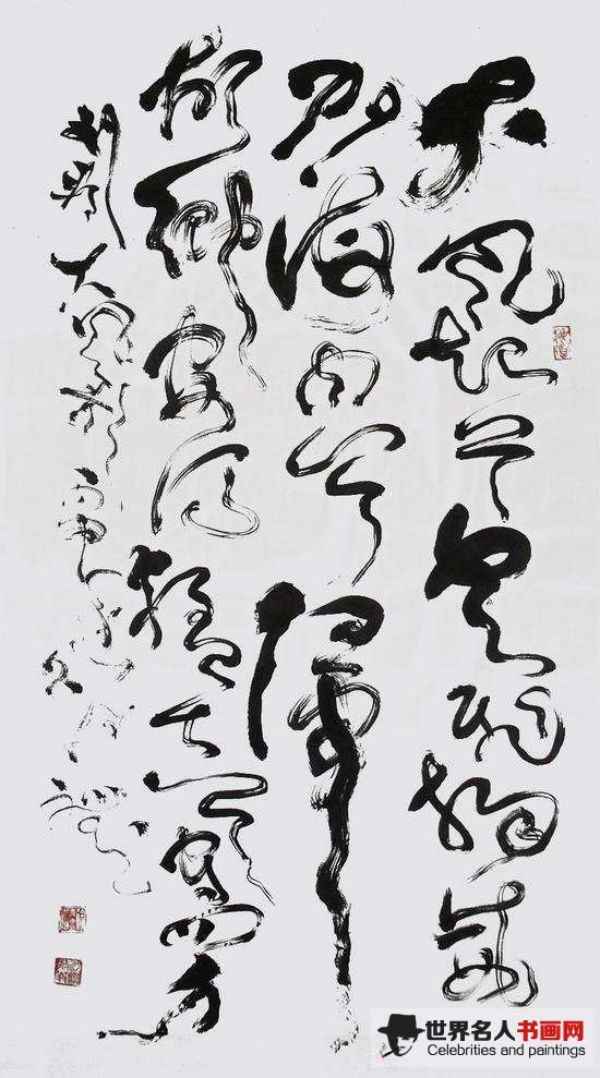 大風起兮雲飛揚威
加海内兮歸
故鄉安得猛士兮守四方
劉邦大風歌
世界名人书画网
Celebrities and paintings